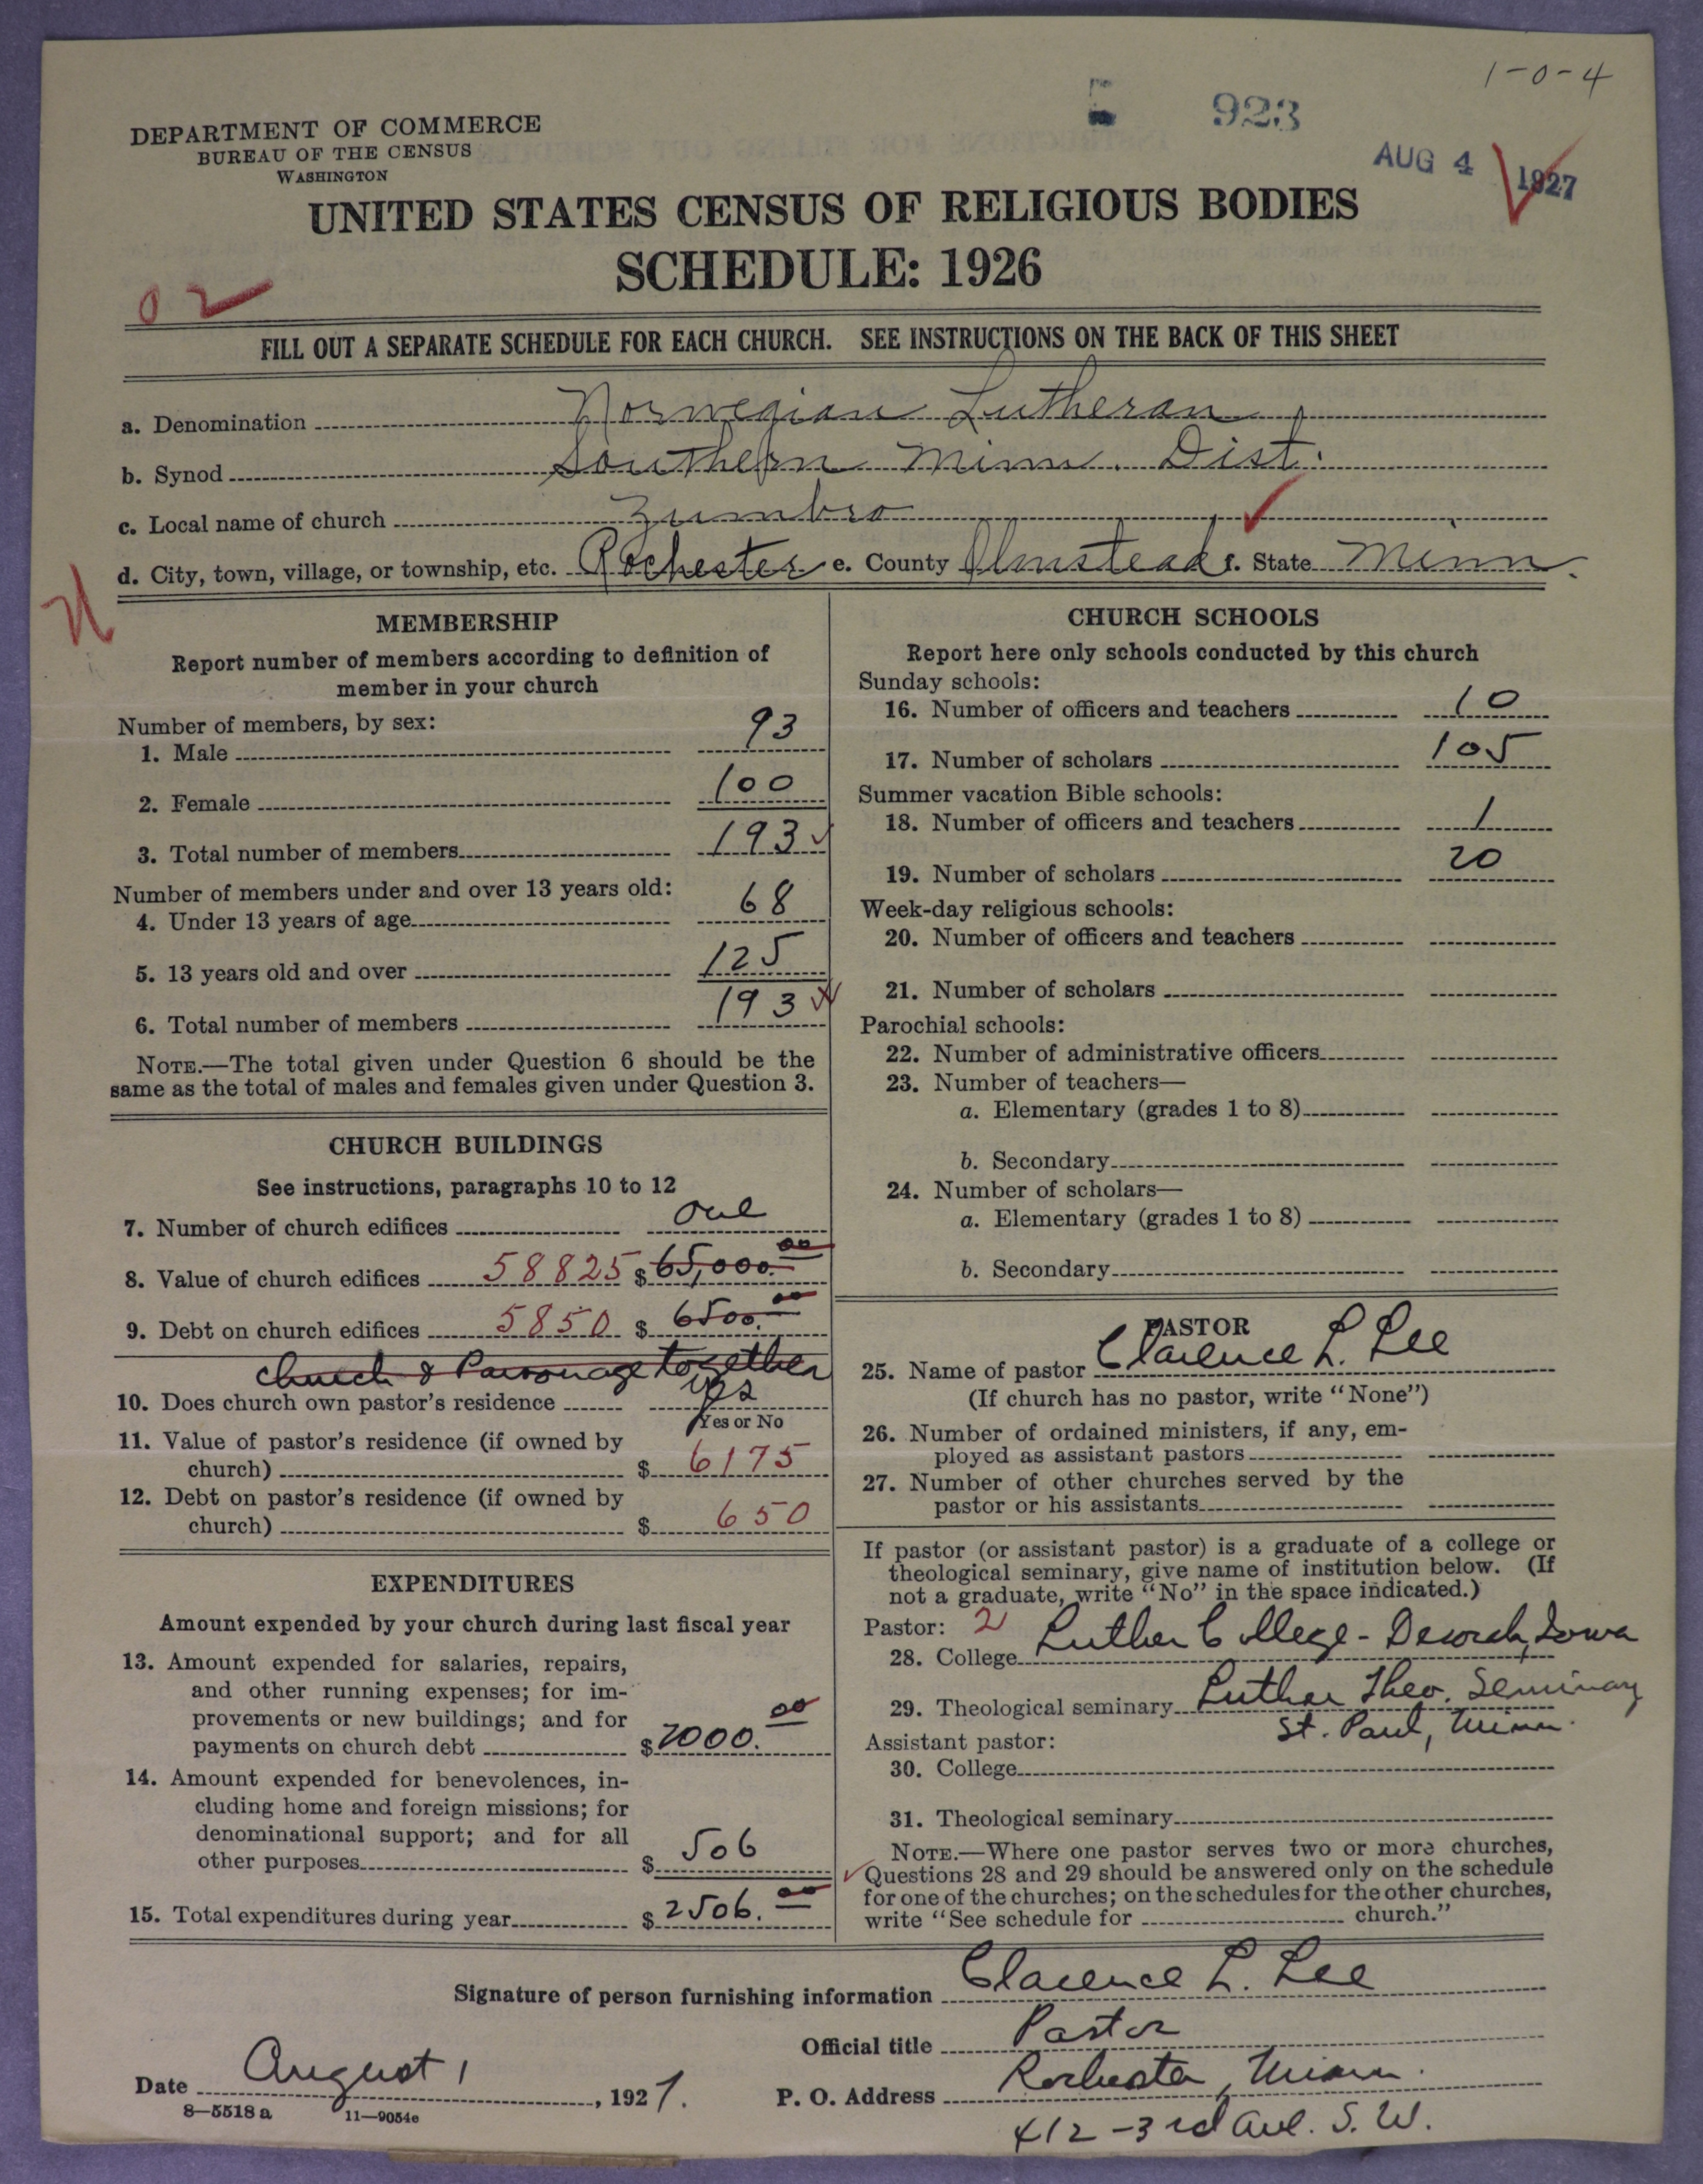 1-0-4
923
DEPARTMENT OF COMMERCE
BUREAU OF THE CENSUS
WASHINGTON
AUG 4 1927
UNITED STATES CENSUS OF RELIGIOUS BODIES
SCHEDULE: 1926
02
FILL OUT A SEPARATE SCHEDULE FOR EACH CHURCH. SEE INSTRUCTIONS ON THE BACK OF THIS SHEET
a. Denomination Norwegian Lutheran
b. Synod Southern Minn. Dist.
c. Local name of church Zumbro
d. City, town, village, or township, etc. Rochester e. County Olmstead f. State Minn.
MEMBERSHIP
Report number of members according to definition of
member in your church
Number of members, by sex:
1. Male 93
2. Female 100
3. Total number of members 193
Number of members under and over 13 years old:
4. Under 13 years of age 68
5. 13 years old and over 125
6. Total number of members 193
NOTE.—The total given under Question 6 should be the
same as the total of males and females given under Question 3.
CHURCH BUILDINGS
See instructions, paragraphs 10 to 12
7. Number of church edifices one
8. Value of church edifices 58825 $ 65,000.00
9. Debt on church edifices 5850 $ 6500.00
Church & Parsonage together
10. Does church own pastor's residence yes
Yes or No
11. Value of pastor's residence (if owned by
church) $ 6175
12. Debt on pastor's residence (if owned by
church) $ 650
EXPENDITURES
Amount expended by your church during last fiscal year
13. Amount expended for salaries, repairs,
and other running expenses; for im-
provements or new buildings; and for
payments on church debt $ 2000.00
14. Amount expended for benevolences, in-
cluding home and foreign missions; for
denominational support; and for all
other purposes $ 506
15. Total expenditures during year $ 2506.00
CHURCH SCHOOLS
Report here only schools conducted by this church
Sunday schools:
16. Number of officers and teachers 10
17. Number of scholars 105
Summer vacation Bible schools:
18. Number of officers and teachers 1
19. Number of scholars 20
Week-day religious schools:
20. Number of officers and teachers
21. Number of scholars
Parochial schools:
22. Number of administrative officers
23. Number of teachers—
a. Elementary (grades 1 to 8)
b. Secondary
24. Number of scholars—
a. Elementary (grades 1 to 8)
b. Secondary
PASTOR
25. Name of pastor Clarence L. Lee
(If church has no pastor, write "None")
26. Number of ordained ministers, if any, em-
ployed as assistant pastors
27. Number of other churches served by the
pastor or his assistants
If pastor (or assistant pastor) is a graduate of a college or
theological seminary, give name of institution below. (If
not a graduate, write "No" in the space indicated.)
Pastor: 2
28. College Luther College - Decorah, Iowa
29. Theological seminary Luther Theo. Seminary
St. Paul, Minn.
Assistant pastor:
30. College
31. Theological seminary
NOTE.—Where one pastor serves two or more churches,
Questions 28 and 29 should be answered only on the schedule
for one of the churches; on the schedules for the other churches,
write "See schedule for church."
Signature of person furnishing information Clarence L. Lee
Official title Pastor
Date August 1, 1927. P. O. Address Rochester, Minn.
412-3rd Ave. S. W.
8—5518 a 11—9054e